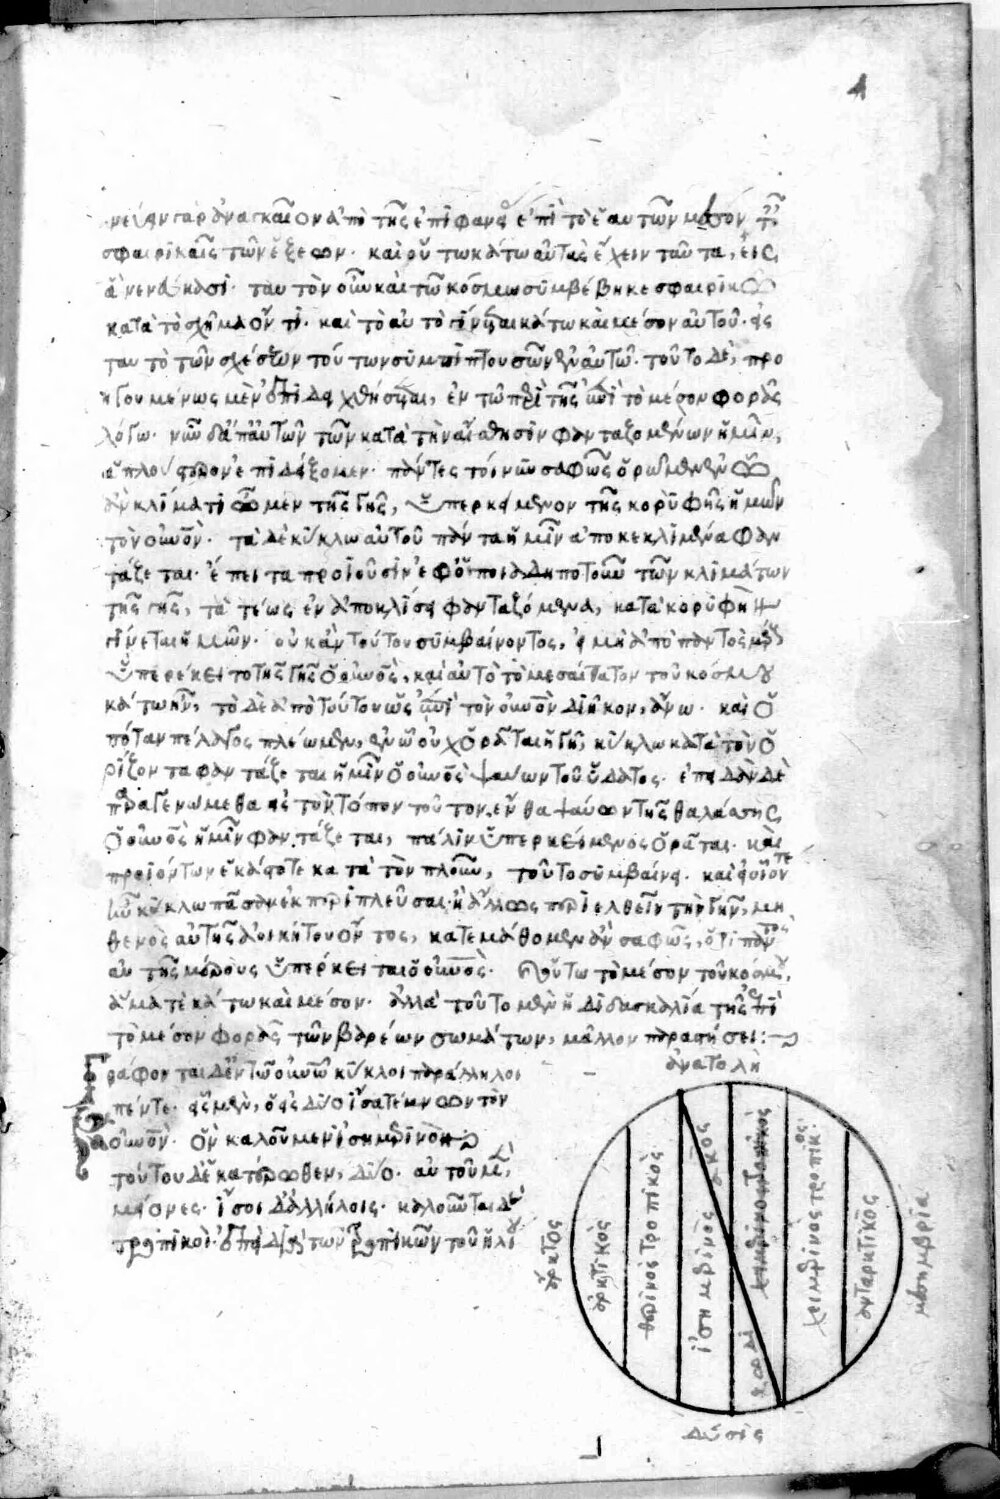 νεύειν γὰρ ἀναγκαῖον ἀπὸ τῆς ἐπιφανείας ἐπὶ τὸ ἑαυτῶν μέσον ταῖς
σφαιρικαῖς τῶν ἕξεων. καὶ οὕτω κάτω αὐτὰς ἔχειν ταῦτα, εἰς
ἃ νενεύκασι. ταυτὸν οὖν καὶ τῶ κόσμω συμβέβηκε σφαιρικῶ
κατὰ τὸ σχῆμα ὄντι. καὶ τὸ αὐτὸ γίνεσθαι κάτω καὶ μέσον αὐτοῦ. εἰς
ταυτὸ τῶν σχέσεων τούτων συμπιπτουσῶν ἐν αὐτῶ. τοῦτο δὲ, προ
ηγουμένως μὲν ἐπιδειχθήσεται, ἐν τῶ περὶ τῆς ἐπὶ τὸ μέσον φορᾶς
λόγω. νῦν δ' ἀπ' αὐτῶν τῶν κατὰ τὴν αἴσθησιν φανταζομένων ἡμῖν,
ἁπλούστερον ἐπιδείξομεν. πάντες τοίνυν σαφῶς ὁρῶμεν ἐν ὧ
ἂν κλίματι ὦμεν τῆς γῆς, ὑπερκείμενον τῆς κορυφῆς ἡμῶν
τὸν οὐρανόν. τὰ δὲ κύκλω αὐτοῦ πάντα ἡμῖν ἀποκεκλιμένα φαν
τάζεται. ἔπειτα προϊοῦσιν ἐφ' ὁποιαδηποτοῦν τῶν κλιμάτων
τῆς γῆς, τὰ τέως ἐν ἀποκλίσει φανταζόμενα, κατὰ κορυφὴν
γίνεται ἡμῶν. οὐκ ἂν τούτου συμβαίνοντος, εἰ μὴ ἀπὸ παντὸς μέρους
ὑπερέκειτο τῆς γῆς ὁ οὐρανός, καὶ αὐτὸ τὸ μεσαίτατον τοῦ κόσμου
κάτω ἦν, τὸ δὲ ἀπὸ τούτου ὡς ἐπὶ τὸν οὐρανὸν διῆκον, ἄνω. καὶ ὁ
πόταν πέλαγος πλέωμεν, ἐν ὧ οὐχ ὁρᾶται ἡ γῆ, κύκλω κατὰ τὸν ὁ
ρίζοντα φαντάζεται ἡμῖν ὁ οὐρανὸς ψαύων τοῦ ὕδατος. ἐπειδὰν δὲ
παραγενώμεθα εἰς τὸν τόπον τοῦτον, ἔνθα ψαύων τῆς θαλάσσης
ὁ οὐρανὸς ἡμῖν φαντάζεται, πάλιν ὑπερκείμενος ὁρᾶται. καὶ
προϊόντων ἑκάστοτε κατὰ τὸν πλοῦν, τοῦτο συμβαίνει. καὶ εἰ οἷόν τε
ἦν κύκλω πᾶσαν ἐκπεριπλεῦσαι ἢ ἄλλως περιελθεῖν τὴν γῆν, μη
θενὸς αὐτῆς ἀοικήτου ὄντος, κατεμάθομεν ἂν σαφῶς, ὅτι παντὸς
αὐτῆς μέρους ὑπέρκειται ὁ οὐρανός. οὕτω τὸ μέσον τοῦ κόσμου,
ἅμα τὲ κάτω καὶ μέσον. ἀλλὰ τοῦτο μὲν ἡ διδασκαλία τῆς ἐπὶ
τὸ μέσον φορᾶς τῶν βαρέων σωμάτων, μᾶλλον παραστήσει:
Γράφονται δ' ἐν τῶ οὐρανῶ κύκλοι παράλληλοι
πέντε. εἷς μὲν, ὁ εἰς δύο ἴσα τέμνων τὸν
οὐρανὸν. ὃν καλοῦμεν ἰσημερινὸν
τούτου δ' ἑκατέρωθεν, δύο. αὐτοῦ μὲν,
μείονες. ἴσοι δ' ἀλλήλοις. καλοῦνται δὲ
τροπικοὶ. ἐπεὶ διὰ τῶν τροπικῶν τοῦ ἡλίου
ἀνατολὴ
ἄρκτος
ἀρκτικός
θερινὸς τροπικὸς
ἰσημερινὸς
ζωδιακὸς
χειμερινὸς τροπικός
ἀνταρκτικὸς
μεσημβρία
δύσις